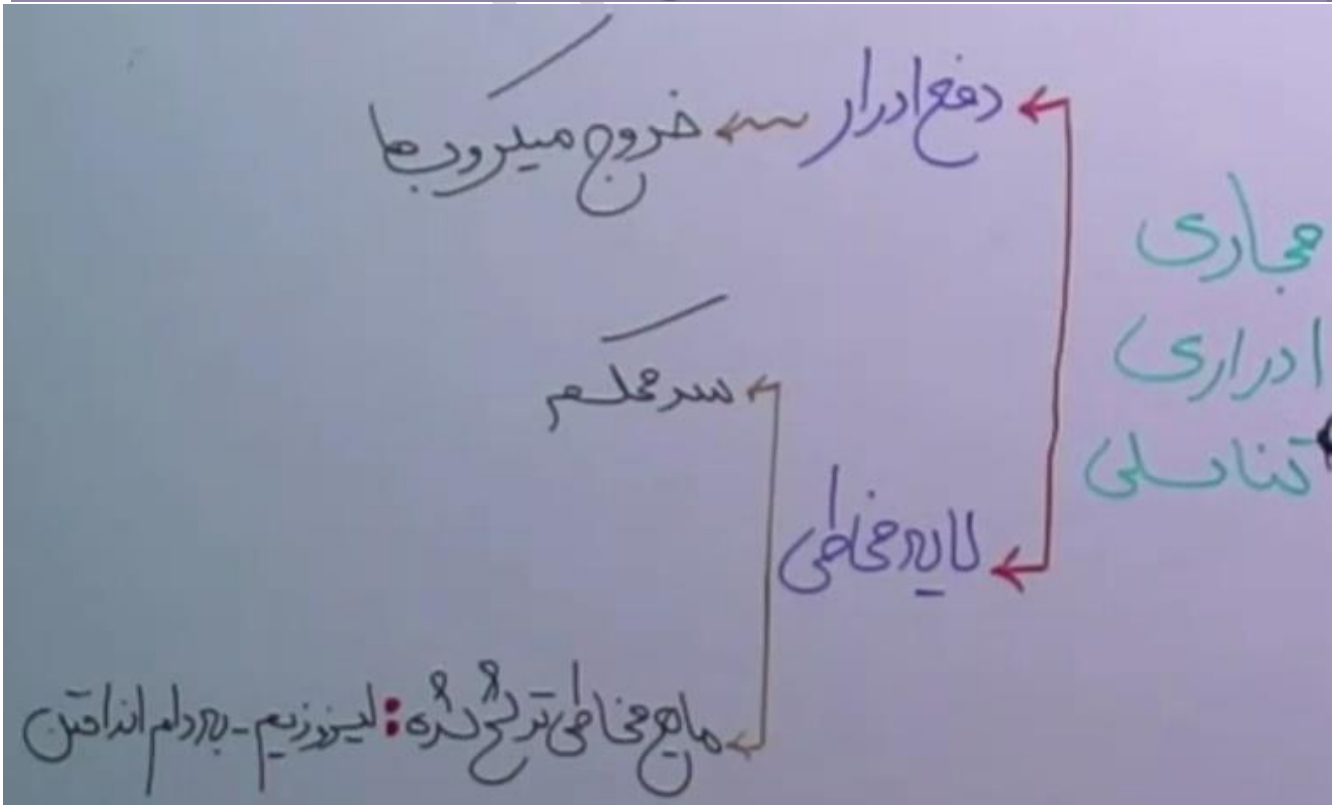 مجاری
ادراری
تناسلی
دفع ادرار ← خروج میکروب‌ها
لایه مخاطی
سد محکم
مایع مخاطی ترشح شده: لیزوزیم - به دام انداختن